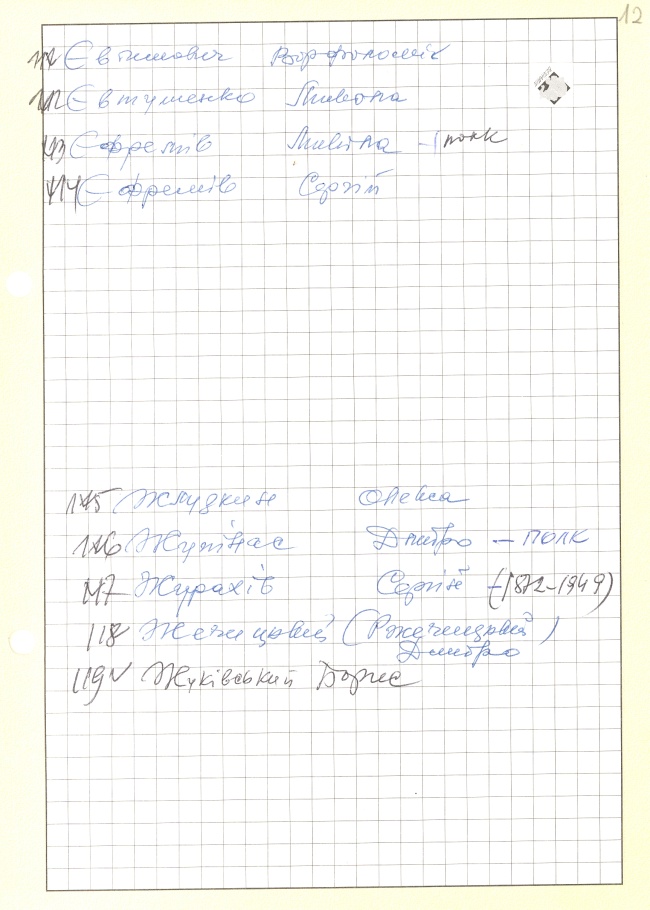 12
111 Євтимович Варфоломій
112 Євтушенко Микола
113 Єфремів Микола - полк
114 Єфремів Сергій
115 Жлудкин Олекса
116 Дмитро - полк
117 Журахів Сергій - (1872-1949)
118 Жечицький (Ржечицький)
Дмитро
119 Жуківський Борис